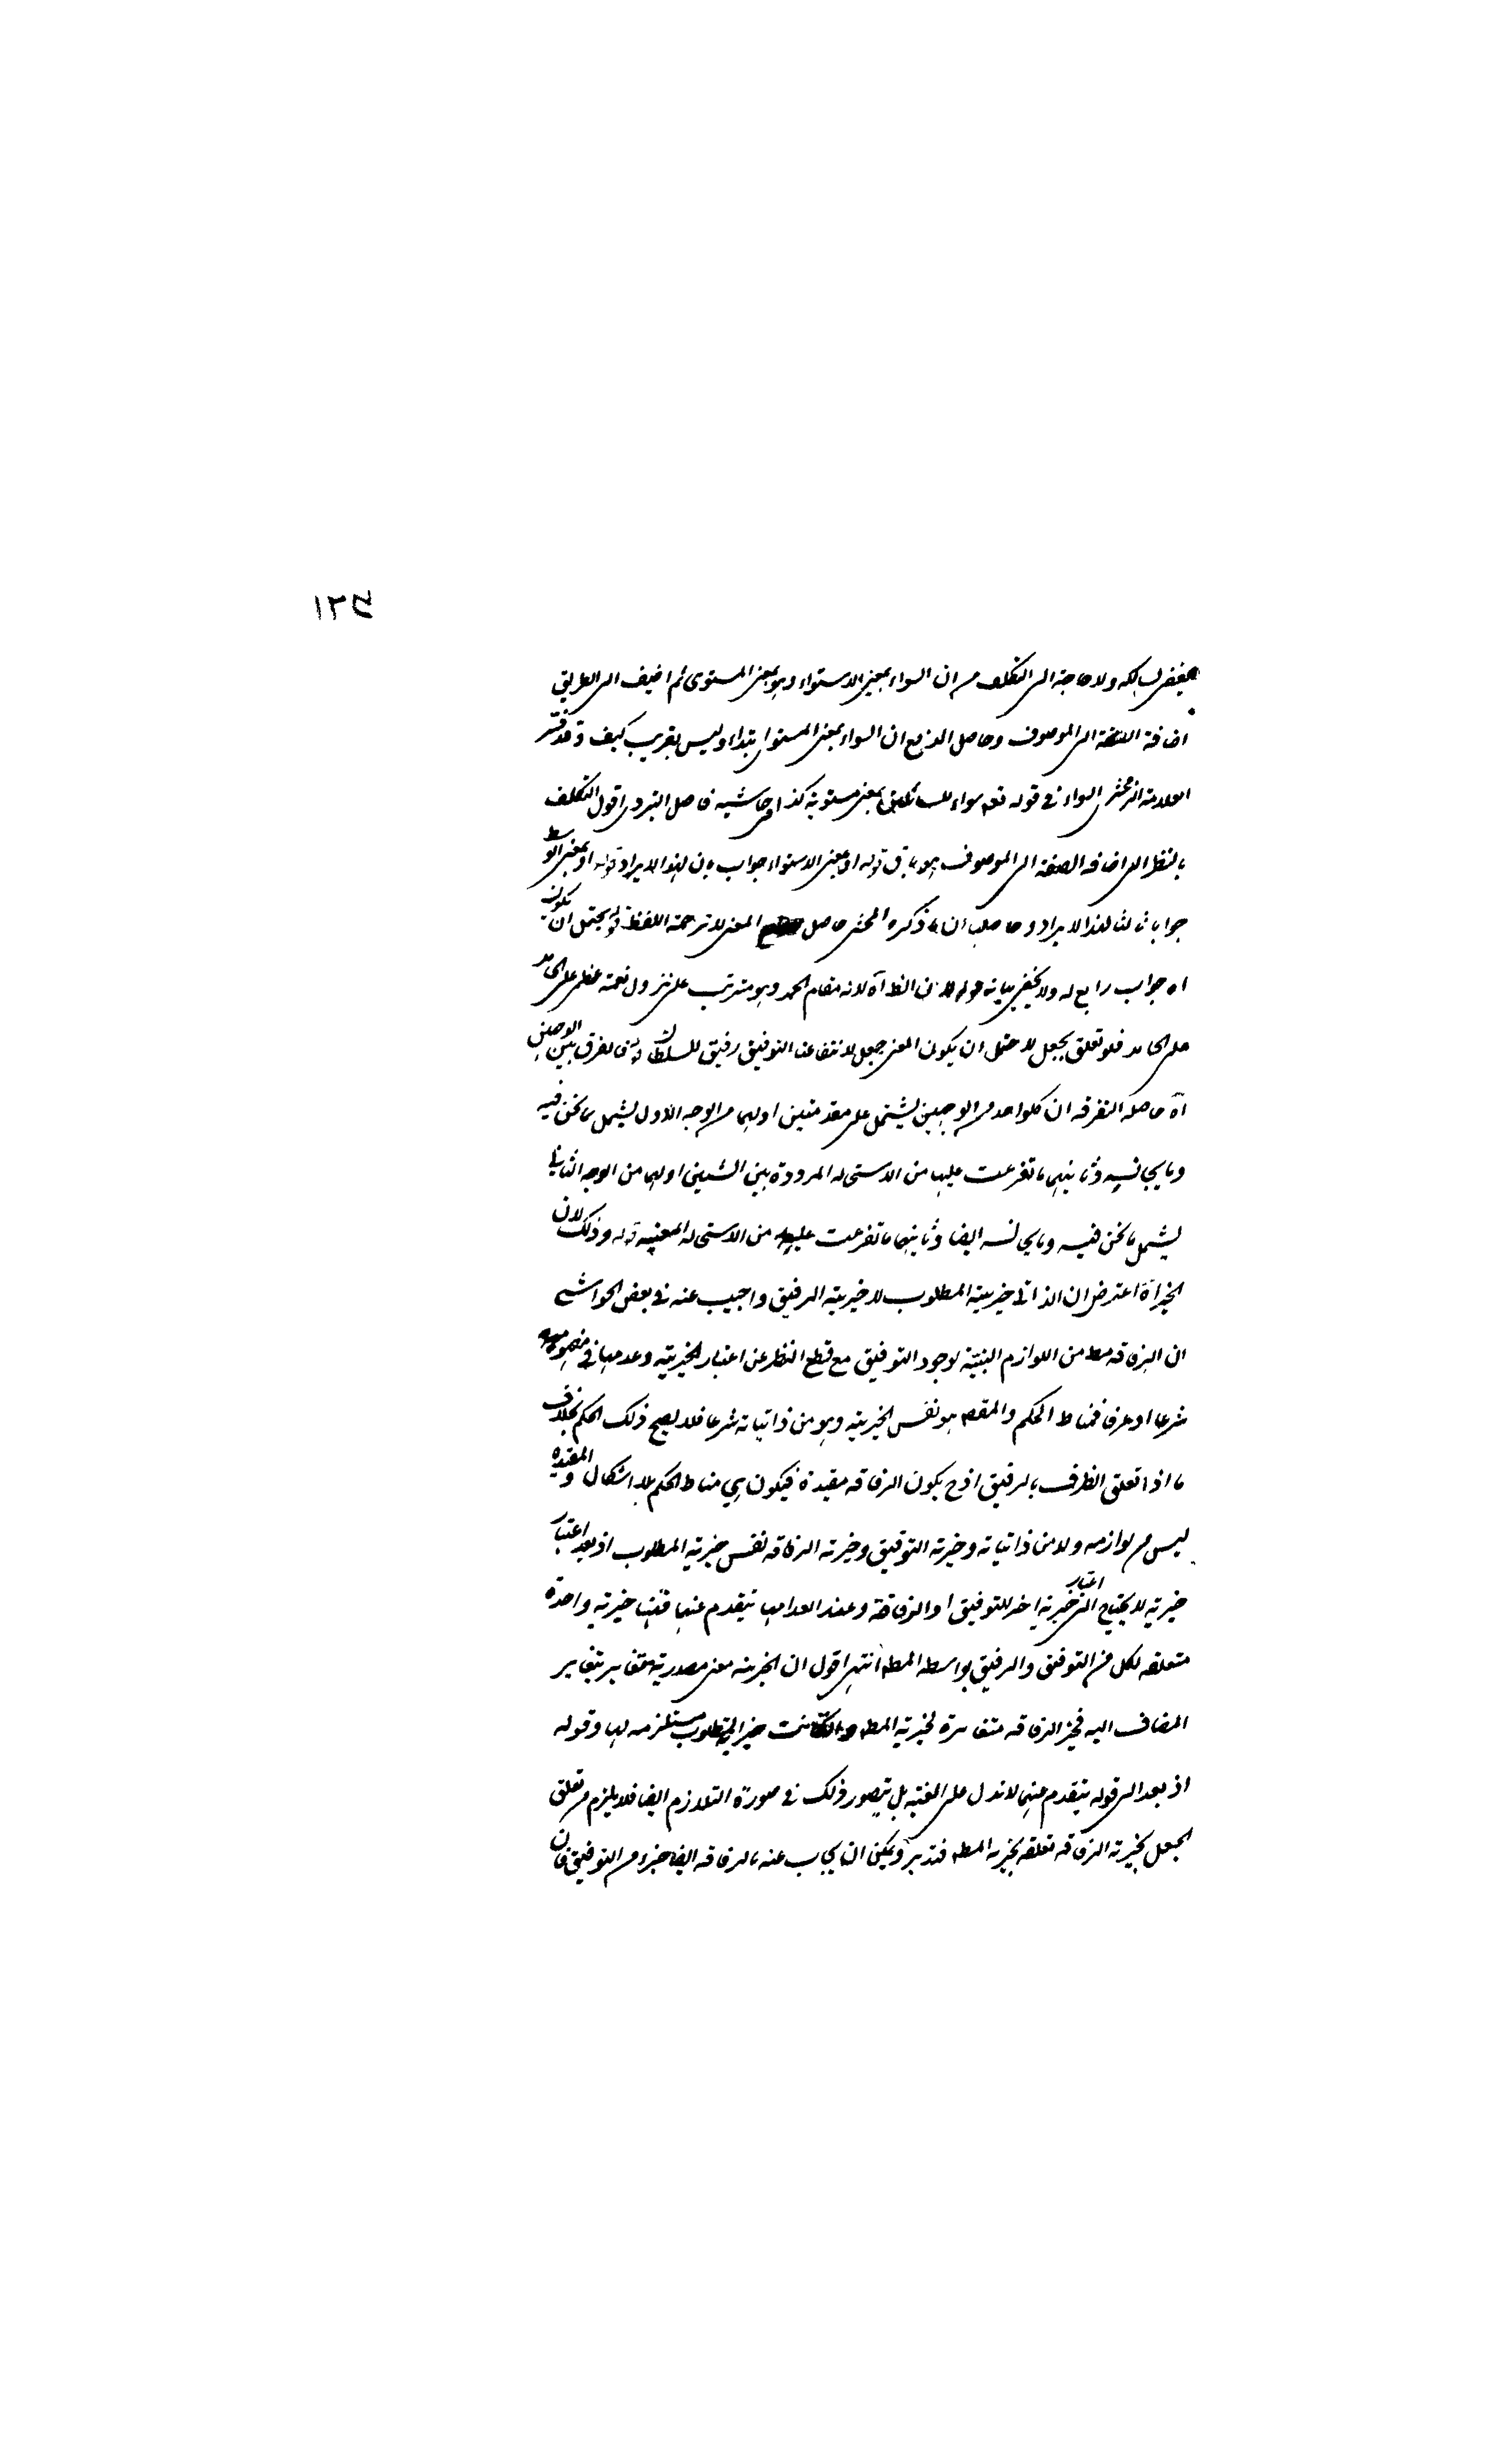 ١٢٥
يفضى سالكه ولا حاجة الى التكلف من ان السواء بمعنى الاستواء وهو بمعنى المستوى ثم اضيف الى الطريق
اضافة الصفة الى الموصوف وحاصل الدفع ان السواء بمعنى المستوى ابتداء وليس بغريب كيف وقد فسر
العلامة الزمخشرى السواء فى قوله تعم سواء للسائلين بمعنى مستوية كذا فى حاشيه فاضل اليزدى اقول التكلف
بالنظر الى اضافه الصفة الى الموصوف هو باق قوله او بمعنى الاستواء جواب ثان لهذا الايراد قوله او بمعنى الوسط
جواب ثالث لهذا الايراد وحاصلها ان ما ذكره المحشى حاصل المعنى لا ترجمة اللفظ قوله يحتمل ان يكون
اه جواب رابع له ولا يخفى بيانه قوله لان الظ آه لانه مقام الحمد وهو مترتب على نزول نعمته عظمى على الحامد
على الحامد فلو تعلق بجعل لاحتمل ان يكون المعنى جعل لانتفاعنا التوفيق رفيق للسلطان قوله فالفرق بين الوجهين
آه حاصله التفرقه ان كلواحد من الوجهين يشتمل على مقدمتين اوليهما من الوجه الاول يشمل ما نحن فيه
وما يجانسه وثانيتهما ما تفرعت عليها من الاستحاله المرددة بين الشيئين اوليهما من الوجه الثانى
يشمل ما نحن فيه وما يجانسه ايضا وثانيتهما ما تفرعت عليها من الاستحاله المعنيه قوله وذلك لان
الخير آه اعترض ان الذاتى خيرية المطلوب لا خيرية الرفيق واجيب عنه فى بعض الحواشى
ان الرفاقه مط من اللوازم البينة لوجود التوفيق مع قطع النظر عن اعتبار الخيرية وعدمها فى مفهومه
شرعا او عرفا فمناط الحكم والمقصد هو نفس الخيرية وهو من ذاتياته شرعا فلا يصح ذلك الحكم بخلاف
ما اذا تعلق الظرف بالرفيق اذ ح يكون الرفاقه مقيدة فيكون هى مناط الحكم بلا اشكال والمقيده
ليس من لوازمه ولا من ذاتياته وخيرية التوفيق وخيرية الرفاقه نفس خيرية المطلوب اذ بعد اعتبار
خيرته لا يحتاج الى اعتبار خيرية اخر للتوفيق او الرفاقة وعند انعدامها ينعدم عنهما فثمة خيرية واحدة
متعلقه بكل من التوفيق والرفيق بواسطه المط انتهى اقول ان الخيرية معنى مصدرية متغاير بتغاير
المضاف اليه فخير الرفاقه متغايرة لخيرية المط وان كانت خيرية المطلوب مستلزمه لها وقوله
اذ بعد الى قوله ينعدم عنهما لا تدل على العينية بل يتصور ذلك فى صورة التلازم ايضا فلا يلزم من تعلق
الجعل بخيرية الرفاقه تعلقه بخيرية المط فتدبر ويمكن ان يجاب عنه بالرفاقه ايضا جزء من التوفيق فان